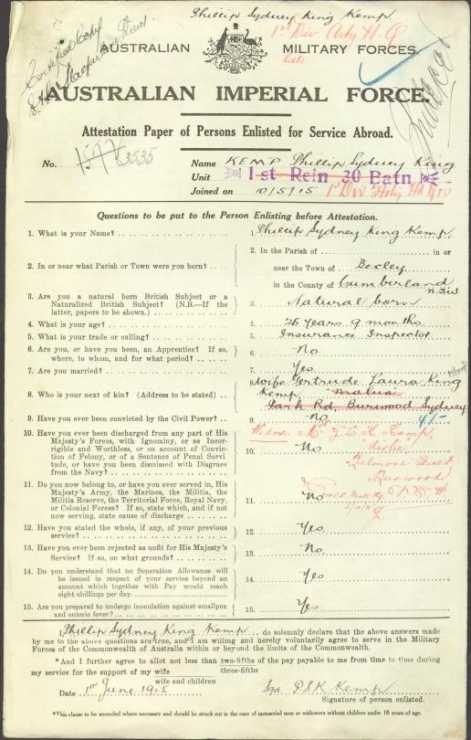 Phillip Sydney King Kemp
1st Div Arty H.Q.
Certified Copy
AUSTRALIAN MILITARY FORCES.
AUSTRALIAN IMPERIAL FORCE.
Attestation Paper of Persons Enlisted for Service Abroad.
No. 3535 Name KEMP Phillip Sydney King
Unit 1st Rein 30 Batn
Joined on 10/5/15
Questions to be put to the Person Enlisting before Attestation.
1. What is your Name? 1. Phillip Sydney King Kemp
2. In or near what Parish or Town were you born? 2. In the Parish of in or
near the Town of Bexley
in the County of Cumberland N.S.W.
3. Are you a natural born British Subject or a
Naturalized British Subject? (N.B.—If the
latter, papers to be shown.) 3. Natural born
4. What is your age? 4. 26 years 9 months
5. What is your trade or calling? 5. Insurance Inspector
6. Are you, or have you been, an Apprentice? If so,
where, to whom, and for what period? 6. No
7. Are you married? 7. Yes
8. Who is your next of kin? (Address to be stated) 8. wife Gertrude Laura King
Kemp
Park Rd, Burwood Sydney
9. Have you ever been convicted by the Civil Power? 9. No
10. Have you ever been discharged from any part of His
Majesty's Forces, with Ignominy, or as Incor-
rigible and Worthless, or on account of Convic-
tion of Felony, or of a Sentence of Penal Servi
tude, or have you been dismissed with Disgrace
from the Navy? 10. No
Burwood
11. Do you now belong to, or have you ever served in, His
Majesty's Army, the Marines, the Militia, the
Militia Reserve, the Territorial Force, Royal Navy,
or Colonial Forces? If so, state which, and if not
now serving, state cause of discharge 11. No
12. Have you stated the whole, if any, of your previous
service? 12. Yes
13. Have you ever been rejected as unfit for His Majesty's
Service? If so, on what grounds? 13. No
14. Do you understand that no Separation Allowance will
be issued in respect of your service beyond an
amount which together with Pay would reach
eight shillings per day 14. Yes
15. Are you prepared to undergo inoculation against smallpox
and enteric fever? 15. Yes
I Phillip Sydney King Kemp do solemnly declare that the above answers made
by me to the above questions are true, and I am willing and hereby voluntarily agree to serve in the Military
Forces of the Commonwealth of Australia within or beyond the limits of the Commonwealth.
*And I further agree to allot not less than two-fifths of the pay payable to me from time to time during
three-fifths
my service for the support of my wife
wife and children
Date 1st June 1915 Sgn P S K Kemp
Signature of person enlisted.
*This clause to be amended where necessary and should be struck out in the case of unmarried men or widowers without children under 18 years of age.